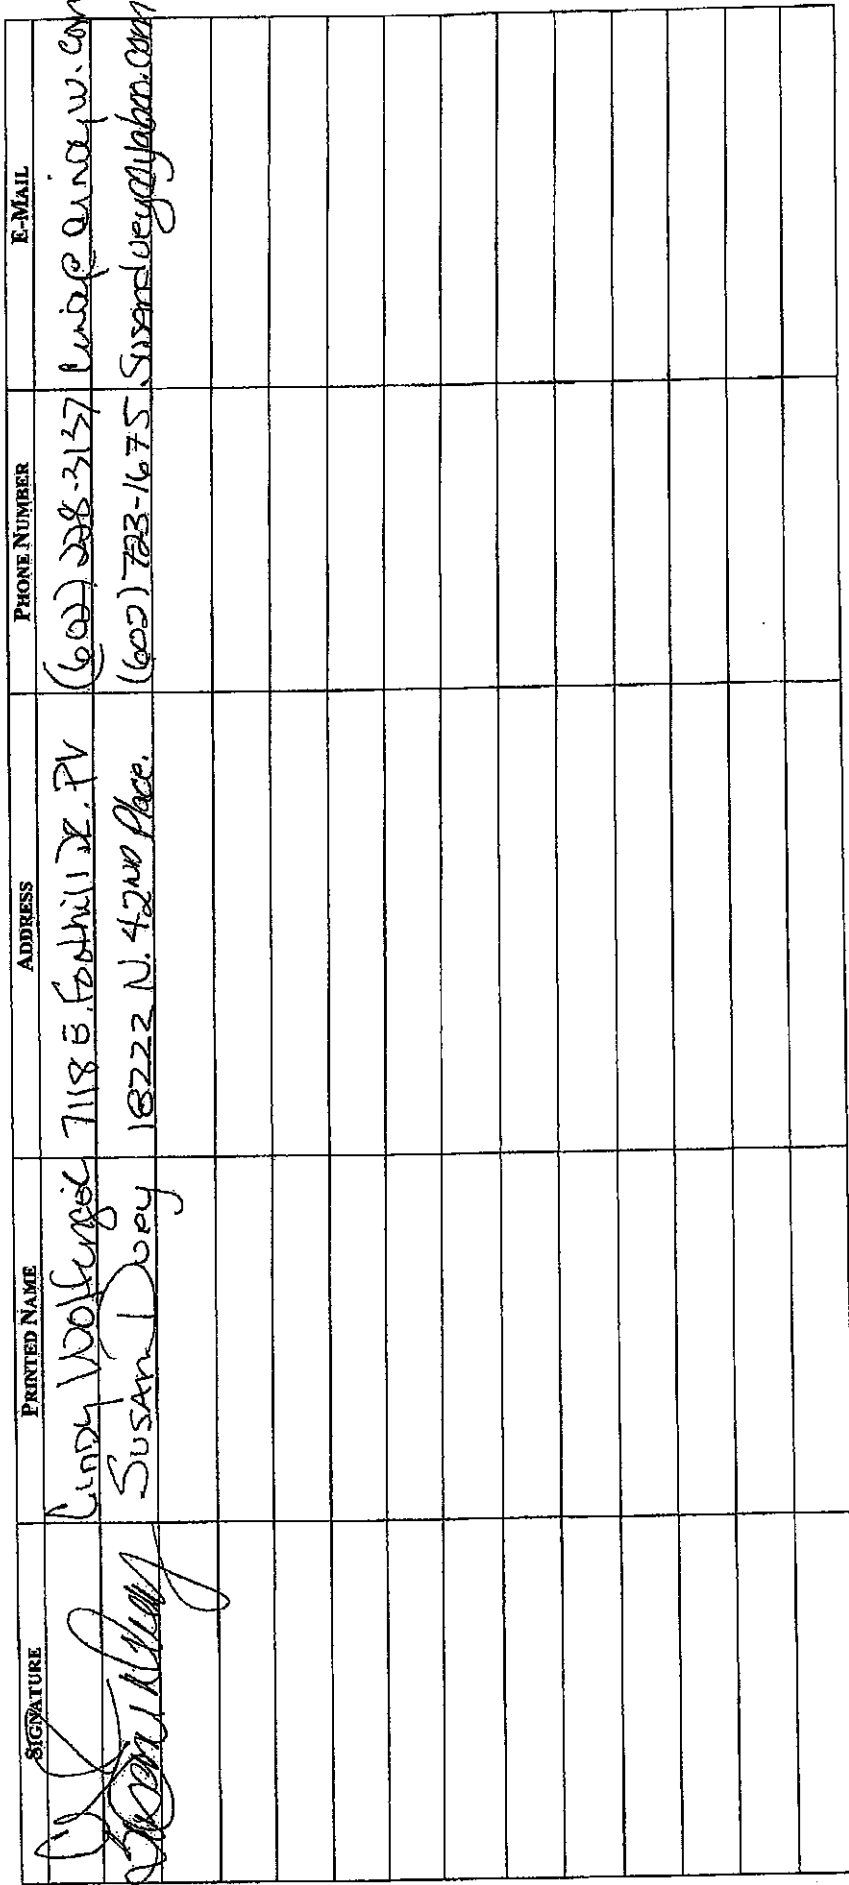 SIGNATURE PRINTED NAME ADDRESS PHONE NUMBER E-MAIL
Cindy 7118 E. Foothill DR. PV (602) 228-3137
Susan Duey 18222 N. 42ND Place. (602) 723-1675 Susanduey@yahoo.com